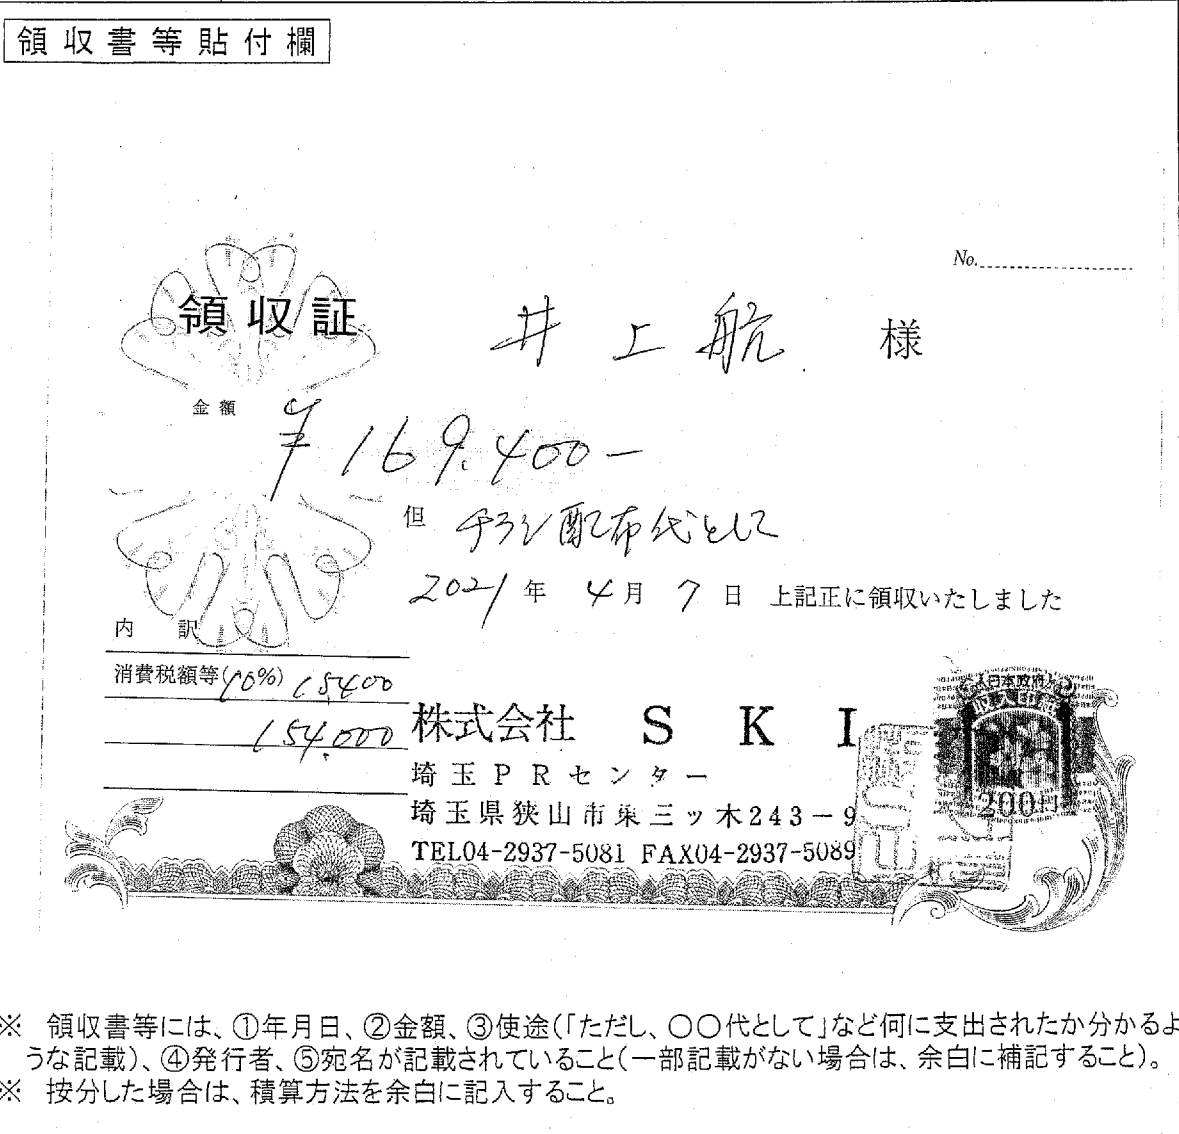 領収書等貼付欄
No.
領収証
井上航 様
金額
¥169.400-
但 チラシ配布代として
2021年 4月 7日 上記正に領収いたしました
内 訳
消費税額等(10%) 15400
154.000
株式会社 SKI
埼玉PRセンター
埼玉県狭山市東三ッ木243-9
TEL04-2937-5081 FAX04-2937-5089
日本政府
収入印紙
200円
※ 領収書等には、①年月日、②金額、③使途(「ただし、〇〇代として」など何に支出されたか分かるよ
うな記載)、④発行者、⑤宛名が記載されていること(一部記載がない場合は、余白に補記すること)。
※ 按分した場合は、積算方法を余白に記入すること。